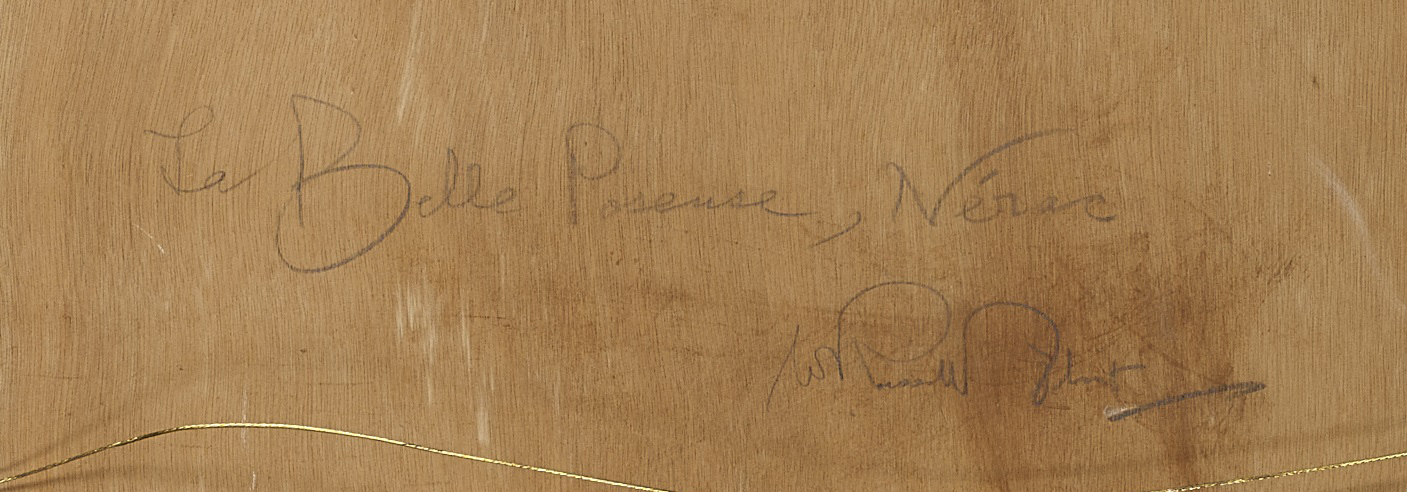 La Belle Poseuse, Nérac
W Russell Flint